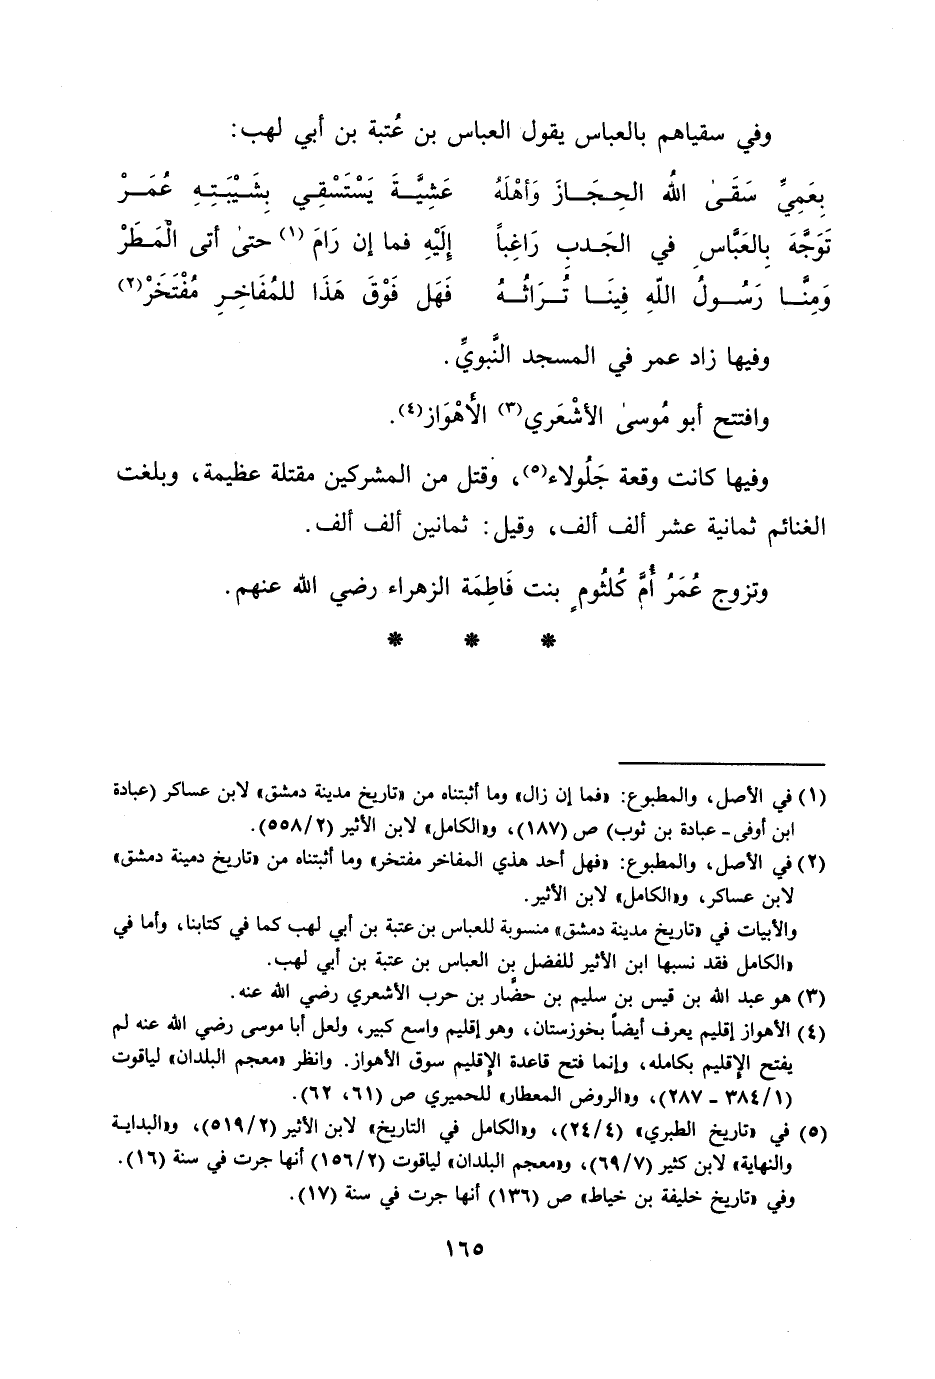 وفي سقياهم بالعباس يقول العباس بن عُتبة بن أبي لهب:
بِعَمِيِّ سَقَىٰ اللهُ الحِجَازَ وَأهْلَهُ عَشِيَّةَ يَسْتَسْقِي بِشَيْبَتِهِ عُمَرْ
تَوَجَّهَ بِالعَبَّاسِ في الجَدبِ رَاغِباً إِلَيْهِ فما إن رَامَ (١) حتىٰ أتى الْمَطَرْ
وَمِنَّا رَسُولُ اللّهِ فِينَا تُرَاثُهُ فَهَل فَوْقَ هَذَا للمُفَاخِرِ مُفْتَخَرْ(٢)
وفيها زاد عمر في المسجد النَّبويِّ.
وافتتح أبو مُوسىٰ الأشْعَري(٣) الأَهْوَاز(٤).
وفيها كانت وقعة جَلُولاء(٥)، وقتل من المشركين مقتلة عظيمة، وبلغت
الغنائم ثمانية عشر ألف ألف، وقيل: ثمانين ألف ألف.
وتزوج عُمَرُ أُمَّ كُلثُومٍ بنت فَاطِمَة الزهراء رضي الله عنهم.
* * *
(١) في الأصل، والمطبوع: «فما إن زال» وما أثبتناه من «تاريخ مدينة دمشق» لابن عساكر (عبادة
ابن أوفى- عبادة بن ثوب) ص (١٨٧)، و«الكامل» لابن الأثير (٥٥٨/٢).
(٢) في الأصل، والمطبوع: «فهل أحد هذي المفاخر مفتخر» وما أثبتناه من «تاريخ دمينة دمشق»
لابن عساكر، و«الكامل» لابن الأثير.
والأبيات في «تاريخ مدينة دمشق» منسوبة للعباس بن عتبة بن أبي لهب كما في كتابنا، وأما في
«الكامل فقد نسبها ابن الأثير للفضل بن العباس بن عتبة بن أبي لهب.
(٣) هو عبد الله بن قيس بن سليم بن حضَّار بن حرب الأشعري رضي الله عنه.
(٤) الأهواز إقليم يعرف أيضاً بخوزستان، وهو إقليم واسع كبير، ولعل أبا موسى رضي الله عنه لم
يفتح الإقليم بكامله، وإنما فتح قاعدة الإقليم سوق الأهواز. وانظر «معجم البلدان» لياقوت
(٣٨٤/١ - ٢٨٧)، و«الروض المعطار» للحميري ص (٦١، ٦٢).
(٥) في «تاريخ الطبري» (٢٤/٤)، و«الكامل في التاريخ» لابن الأثير (٥١٩/٢)، و«البداية
والنهاية» لابن كثير (٦٩/٧)، و«معجم البلدان» لياقوت (١٥٦/٢) أنها جرت في سنة (١٦).
وفي «تاريخ خليفة بن خياط» ص (١٣٦) أنها جرت في سنة (١٧).
١٦٥